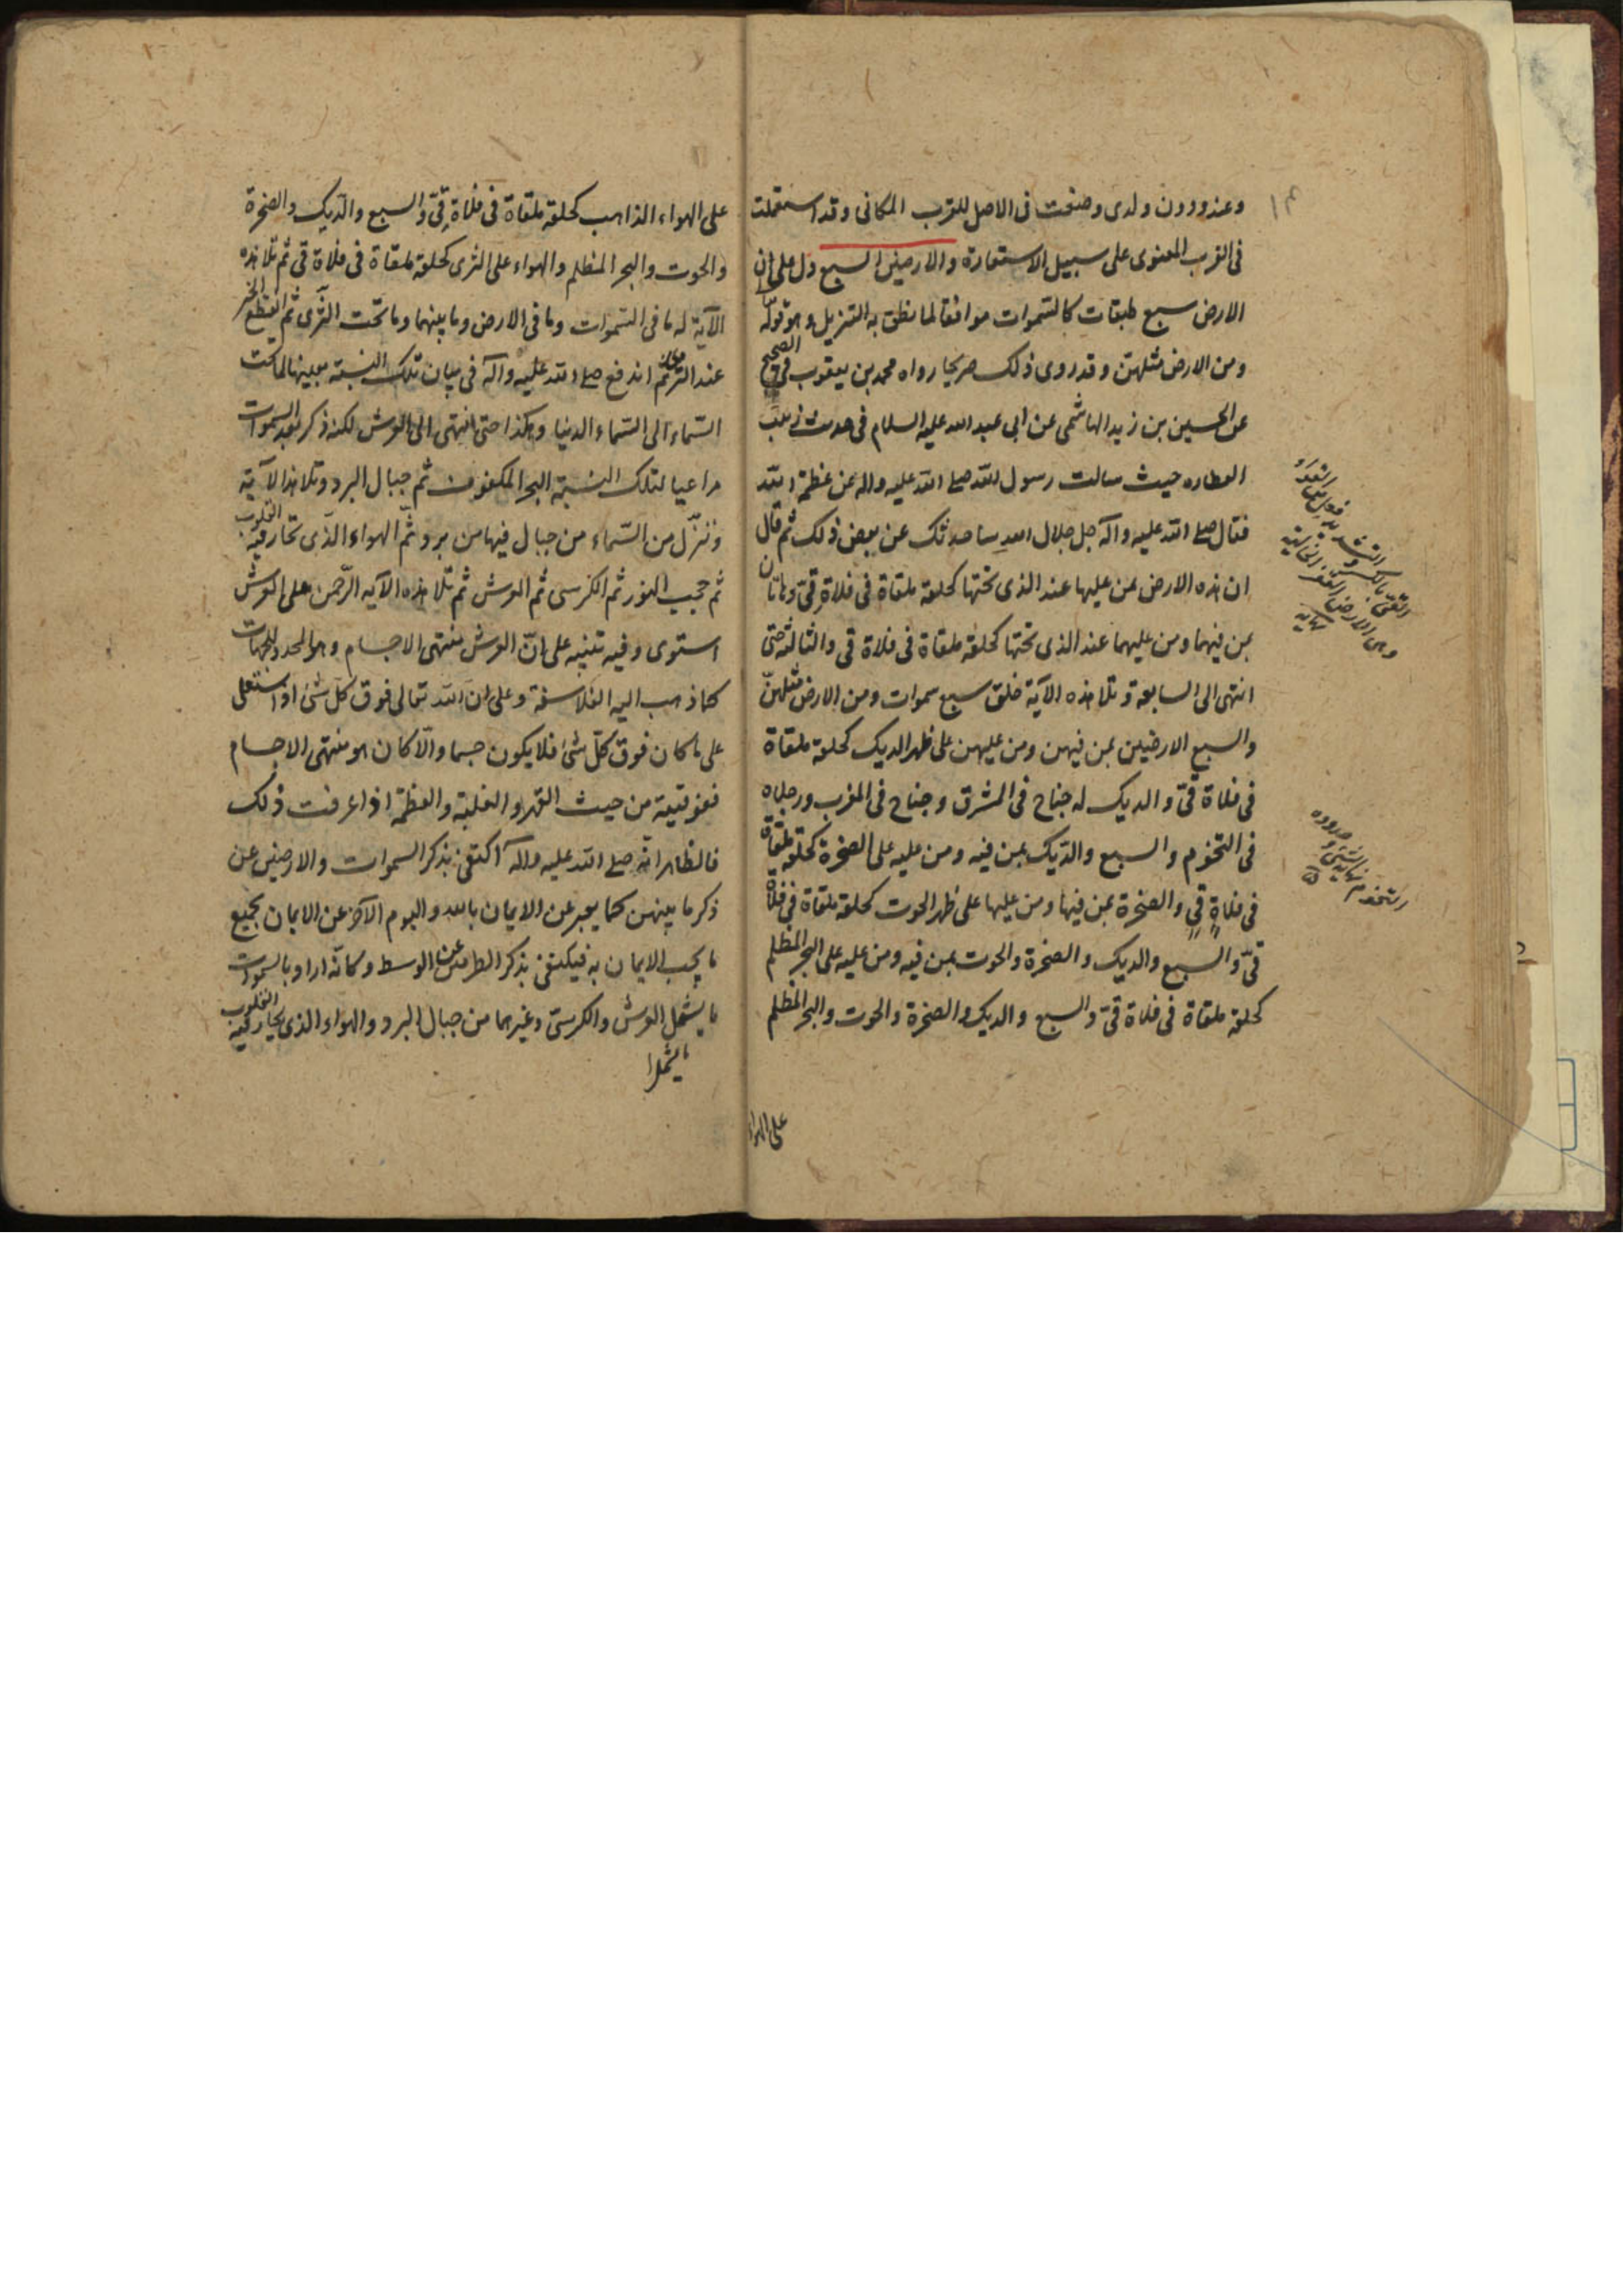 وعند ودون ولدى وضعت فى الاصل للقرب المكانى وقد استعملت
فى القرب المعنوى على سبيل الاستعارة والارضين السبع دل على ان
الارض سبع طبقات كالسّموات موافقا لما نطق به التنزيل وهو قوله
ومن الارض مثلهنّ وقد روى ذلك صريحا رواه محمد بن يعقوب فى الصحيح
عن الحسين بن زيد الهاشمى عن ابى عبد الله عليه السلام فى حديث زينب
العطاره حيث سالت رسول الله صلى الله عليه واله عن عظمة الله
فقال صلى الله عليه وآله جل جلال الله ساحدثك عن بعض ذلك ثم قال
ان هذه الارض بمن عليها عند الذى تحتها كحلقة ملقاة فى فلاة قىّ وهاتان
بمن فيهما ومن عليهما عند الذى تحتها كحلقة ملقاة فى فلاة قى والثالثة حتى
انتهى الى السابعة وتلا هذه الآية خلق سبع سموات ومن الارض مثلهنّ
والسبع الارضين بمن فيهن ومن عليهن على ظهر الديك كحلقة ملقاة
فى فلاة قىّ والديك له جناح فى المشرق وجناح فى المغرب ورجلاه
فى التخوم والسبع والدّيك بمن فيه ومن عليه على الصخرة كحلقة ملقاة
فى فلاةٍ قىّ والصخرة بمن فيها ومن عليها على ظهر الحوت كحلقة ملقاة فى فلاة
قىّ والسبع والديك والصخرة والحوت بمن فيه ومن عليه على البحر المظلم
كحلقة ملقاة فى فلاة قىّ والسبع والديك والصخرة والحوت والبحر المظلم
على الهواء
١٣
القىّ بالكسر والتشديد فعل من القواء
وهى الارض القفر الخالية
نهايه
على الهواء الذاهب كحلقة ملقاة فى فلاة قىّ والسبع والدّيك والصخرة
والحوت والبحر المظلم والهواء على الثرى كحلقة ملقاة فى فلاة قى ثم تلا هذه
الآية له ما فى السّموات وما فى الارض وما بينهما وما تحت الثّرى ثم انقطع الخبر
عند الثرى ثم اندفع صلى الله عليه وآله فى بيان تلك النسبة بعينها لما تحت
السّماء الى السّماء الدنيا وهكذا حتى انتهى الى العرش لكنه ذكر بعد السموات
مراعيا لتلك النسبة البحر المكفوف ثم جبال البرد وتلا هذا الآية
وننزّل من السّماء من جبال فيها من برد ثمّ الهواء الّذى تحار فيه القلوب
ثم حجب النور ثم الكرسى ثم العرش ثم تلا هذه الآيه الرّحمن على العرش
استوى وفيه تنبيه على انّ العرش منتهى الاجسام وهو المحدد للجهات
كما ذهب اليه الفلاسفة وعلى ان الله تعالى فوق كلّ شئ اذ استعلى
على ما كان فوق كلّ شئ فلا يكون جسما والّا كان هو منتهى الاجسام
ففوقيته من حيث القهر والغلبة والعظمة اذا عرفت ذلك
فالظاهر انه صلى الله عليه واله اكتفى بذكر السموات والارضين عن
ذكر ما بينهن كما يعبر عن الايمان بالله واليوم الآخر عن الايمان بجميع
ما يجب الايمان به فيكتفى بذكر الطرفين عن الوسط وكانّه اراد بالسموات
ما يشمل العرش والكرسىّ وغيرهما من جبال البرد والهواء الذى تحار فيه القلوب